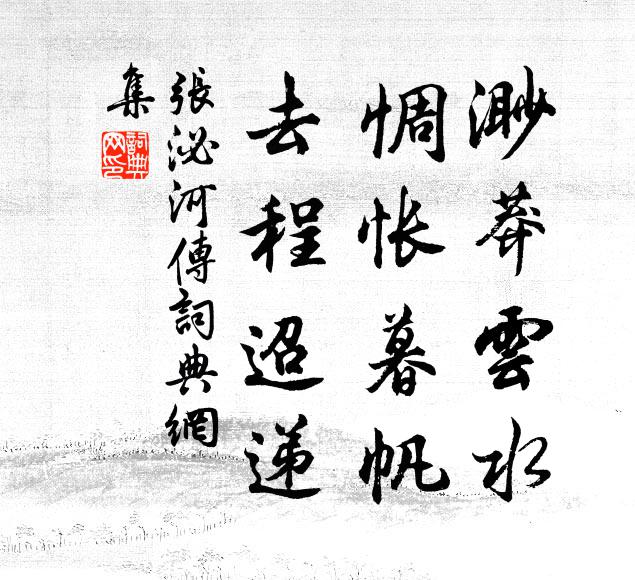 渺莽雲水
惆怅暮帆
去程迢递
張泌河傳詞典網
集
詞典網印